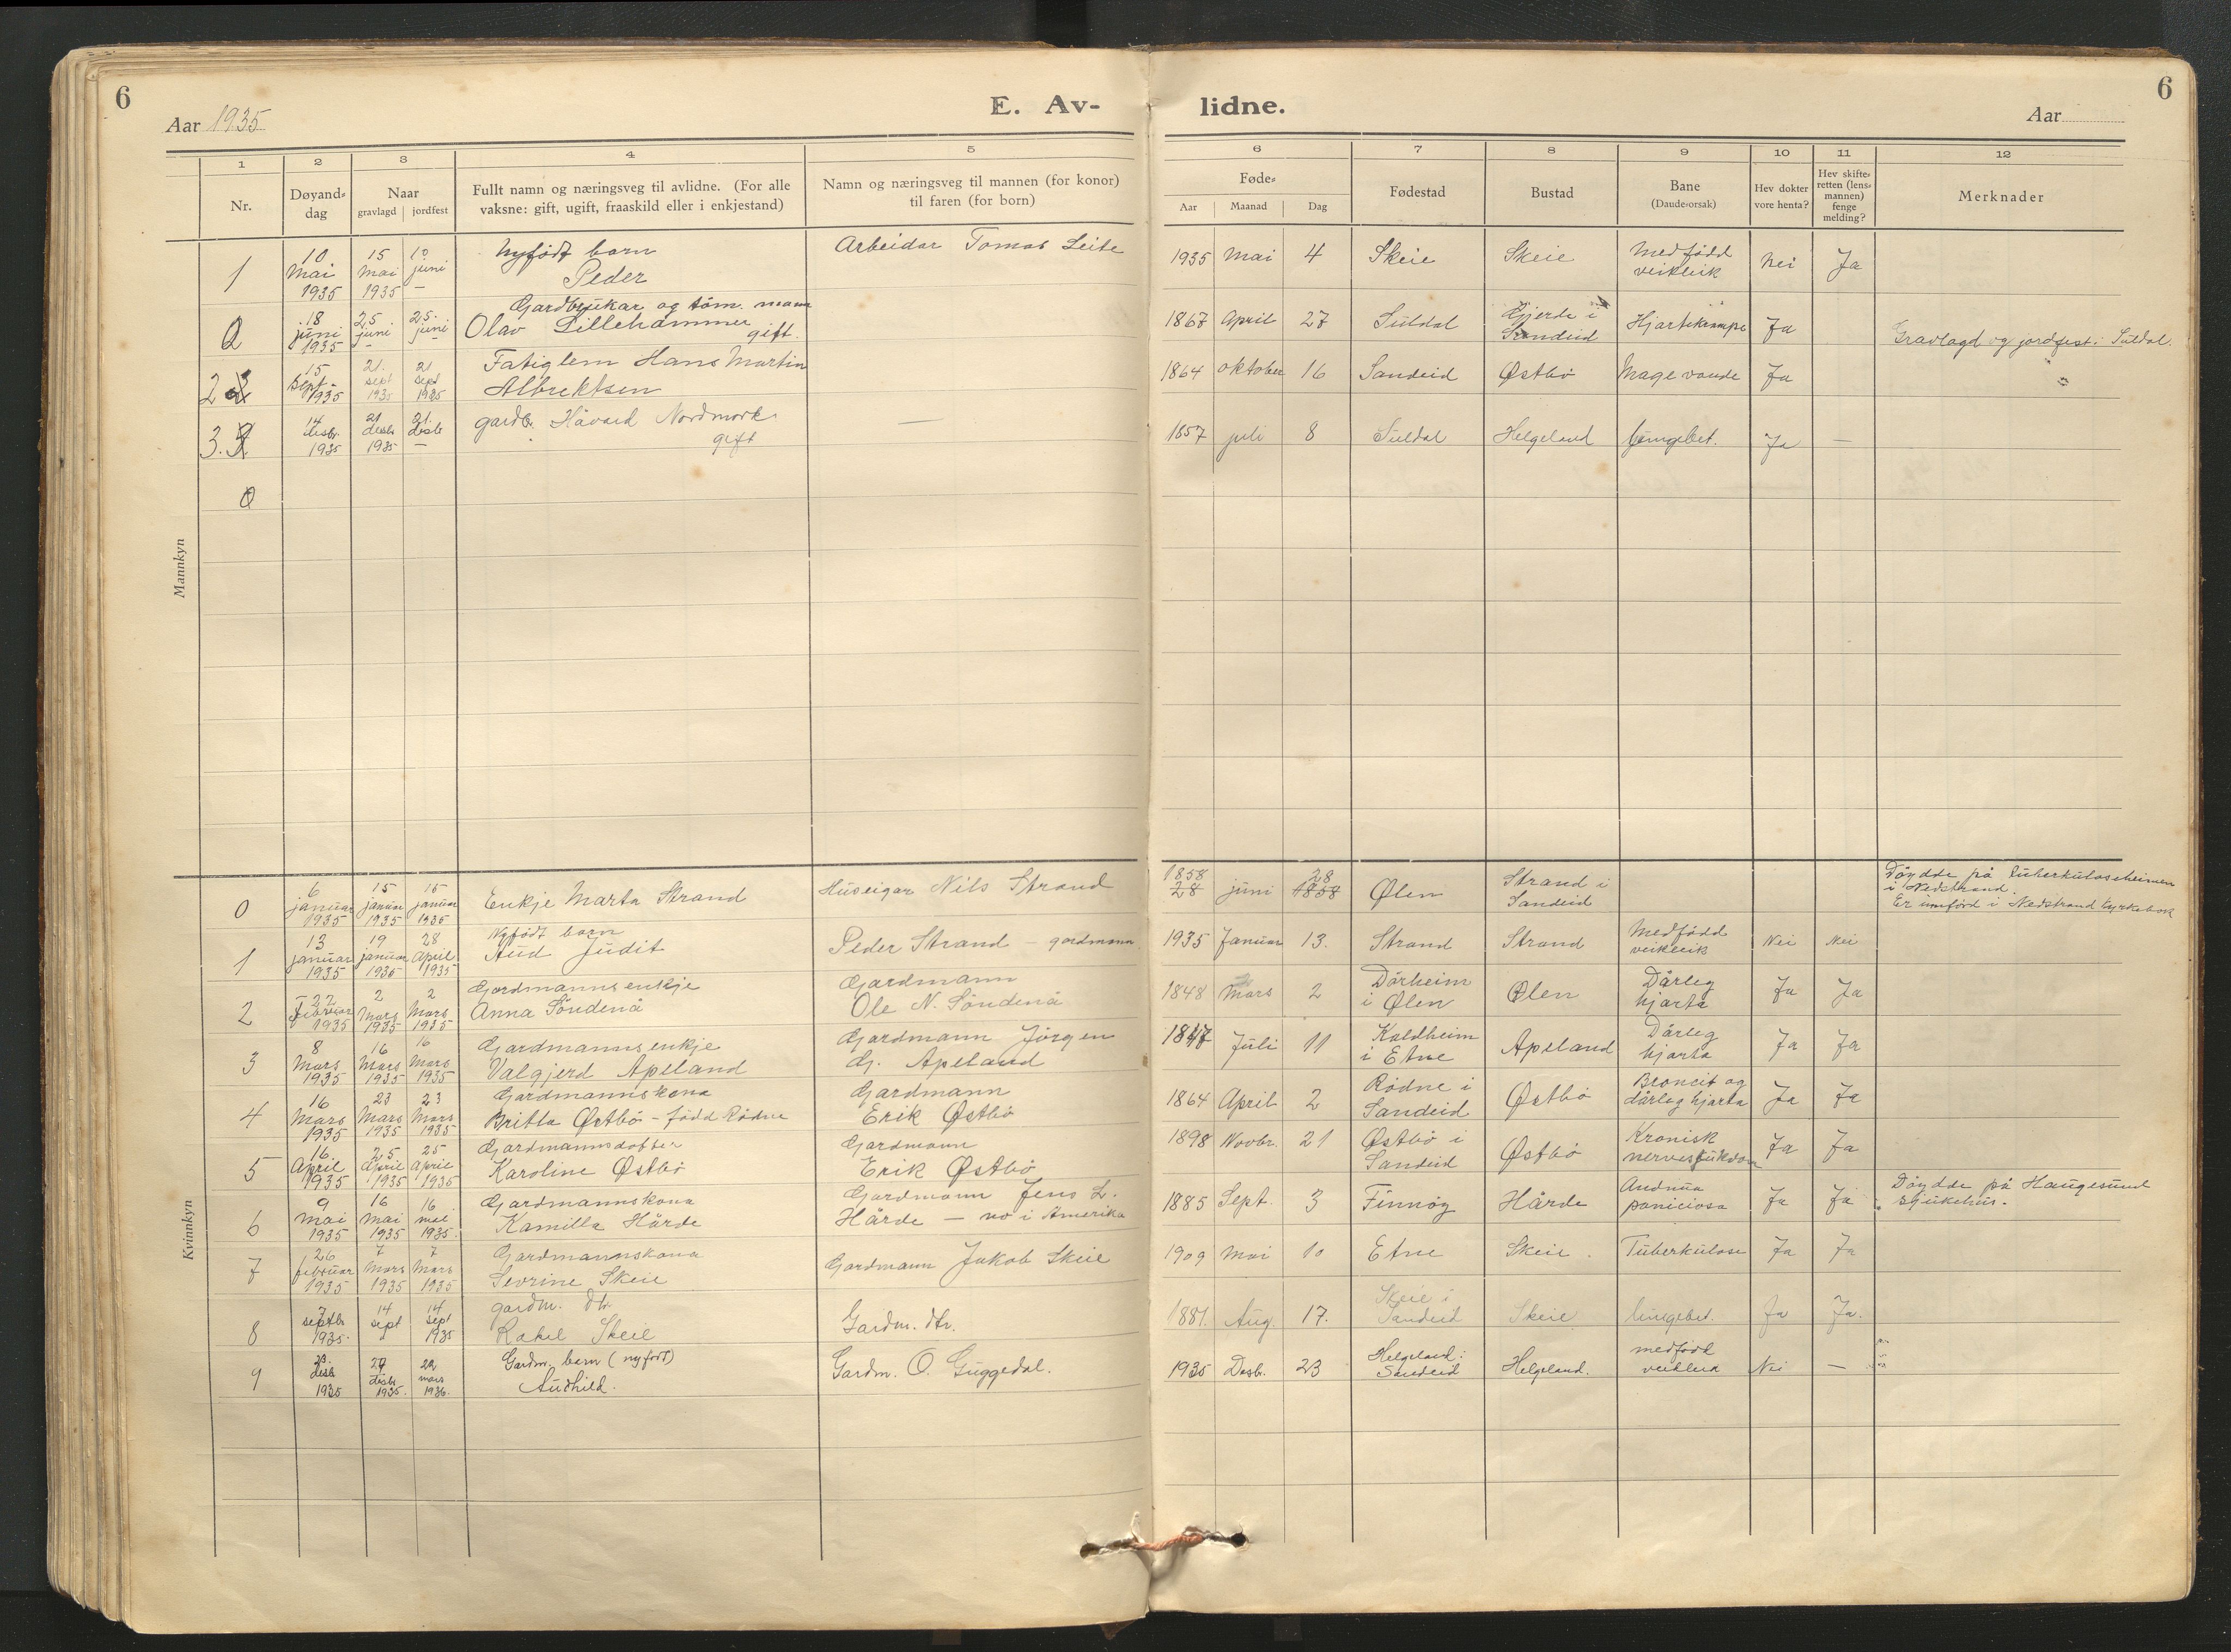 6
Aar 1935
E. Av-
lidne.
Aar
6
1
2
3
4
5
6
7
8
9
10
11
12
Nr.
Døyand-
dag
Naar
gravlagd | jordfest
Fullt namn og næringsveg til avlidne. (For alle
vaksne: gift, ugift, fraaskild eller i enkjestand)
Namn og næringsveg til mannen (for konor)
til faren (for born)
Føde-
Aar
Maanad
Dag
Fødestad
Bustad
Bane
(Daude-orsak)
Hev dokter
vore henta?
Hev skifte-
retten (lens-
mannen)
fenge
melding?
Merknader
Mannkyn
1
10 Mai 1935
15 Mai 1935
10 juni —
Nyfødt barn
Peder
Arbeidar Tomas Leite
1935 Mai 4
Skeie
Skeie
Medfödd
veikleik
Nei
Ja
18 juni 1935
25 juni –
25. juni –
Gardbrukar og töm. mann
Olav Lillehammer
gift.
1867 April 27
Suldal
Gjerde i
Sandeid
Hjartekrampe
Ja
Gravlagd og jordfest i Suldal.
2
15 Sept. 1935
21. sept 1935
21 sept 1935
Fatiglem Hans Martin
Albrektsen
1864 oktober 16
Sandeid
Østbö
Ja
3.
14 desbr. 1935
21 desbr 1935
21. desbr —
gardbr. Håvard Nordmork
gift
—
1857 juli 8
Suldal
Helgeland
lungebet.
Ja
—
0
Kvinnkyn
0
6 januar 1935
15 januar 1935
15 januar 1935
Enkje Marta Strand
Huseigar Nils Strand
1858
28 juni 28
1858
Ølen
Strand i
Sandeid
Döydde på Tuberkuloseheimen
i Nedstrand.
Er innförd i Nedstrand kyrkebok
1
13 januar 1935
19 januar 1935
28 April 1935
Nyfödt barn
Aud Judit
Peder Strand — gardmann.
1935 Januar 13.
Strand
Strand
Medfödd
veikleik
Nei
Nei
2
22 Februar 1935
2 Mars 1935
2 Mars 1935
Gardmannsenkje
Anna Söndenå
Gardmann
Ole N. Söndenå
1848 Mars 2
Dörheim
i Ølen
Ølen
Dårleg
hjarta
Ja
Ja
3
8 Mars 1935
16 Mars 1935
16 Mars 1935
Gardmannsenkje
Valgjerd Apeland
Gardmann Jörgen
G. Apeland
1847 Juli 11
Kaldheim
i Etne
Apeland
Dårleg
hjarta
Ja
Ja
4
16 Mars 1935
23 Mars 1935
23 Mars 1935
Gardmannskona
Britta Østbö – född Rödne
Gardmann
Erik Østbö
1864 April 2
Rödne i
Sandeid
Østbö
Broncit og
dårleg hjarta
Ja
Ja
5
16. April 1935
25 April 1935
25 April 1935
Gardmannsdotter
Karoline Østbö
Gardmann
Erik Østbö
1898 Novbr. 21
Østbö i
Sandeid
Østbö
Kronisk
nervesjukdom
Ja
Ja
6
9 Mai 1935
16 Mai 1935
16 mai 1935.
Gardmannskona
Kamilla Hårde
Gardmann Jens L.
Hårde — no i Amerika
1885 Sept. 3
Finnöy
Hårde
Ja
Ja
Döydde på Haugesund
sjukehus.
7
26 februar 1935
7 Mars 1935
7 Mars 1935
Gardmannskona
Sevrine Skeie
Gardmann Jakob Skeie
1909 Mai 10
Etne
Skeie.
Tuberkulose
Ja
Ja
8
7 septbr 1935.
14 sept
14 sept 1935
gardm. dtr.
Rakel Skeie
Gardm. dtr.
1881. Aug. 17.
Skeie i
Sandeid
Skeie
lungebet.
Ja
Ja.
9
23. desbr 1935
29 desbr 1935.
22 mars 1936.
Gardm. barn (nyfødt)
Audhild.
Gardm. O. Guggedal.
1935 Desbr. 23
Helgeland i
Sandeid
Helgeland.
medfödd
veikleik
Nei
—